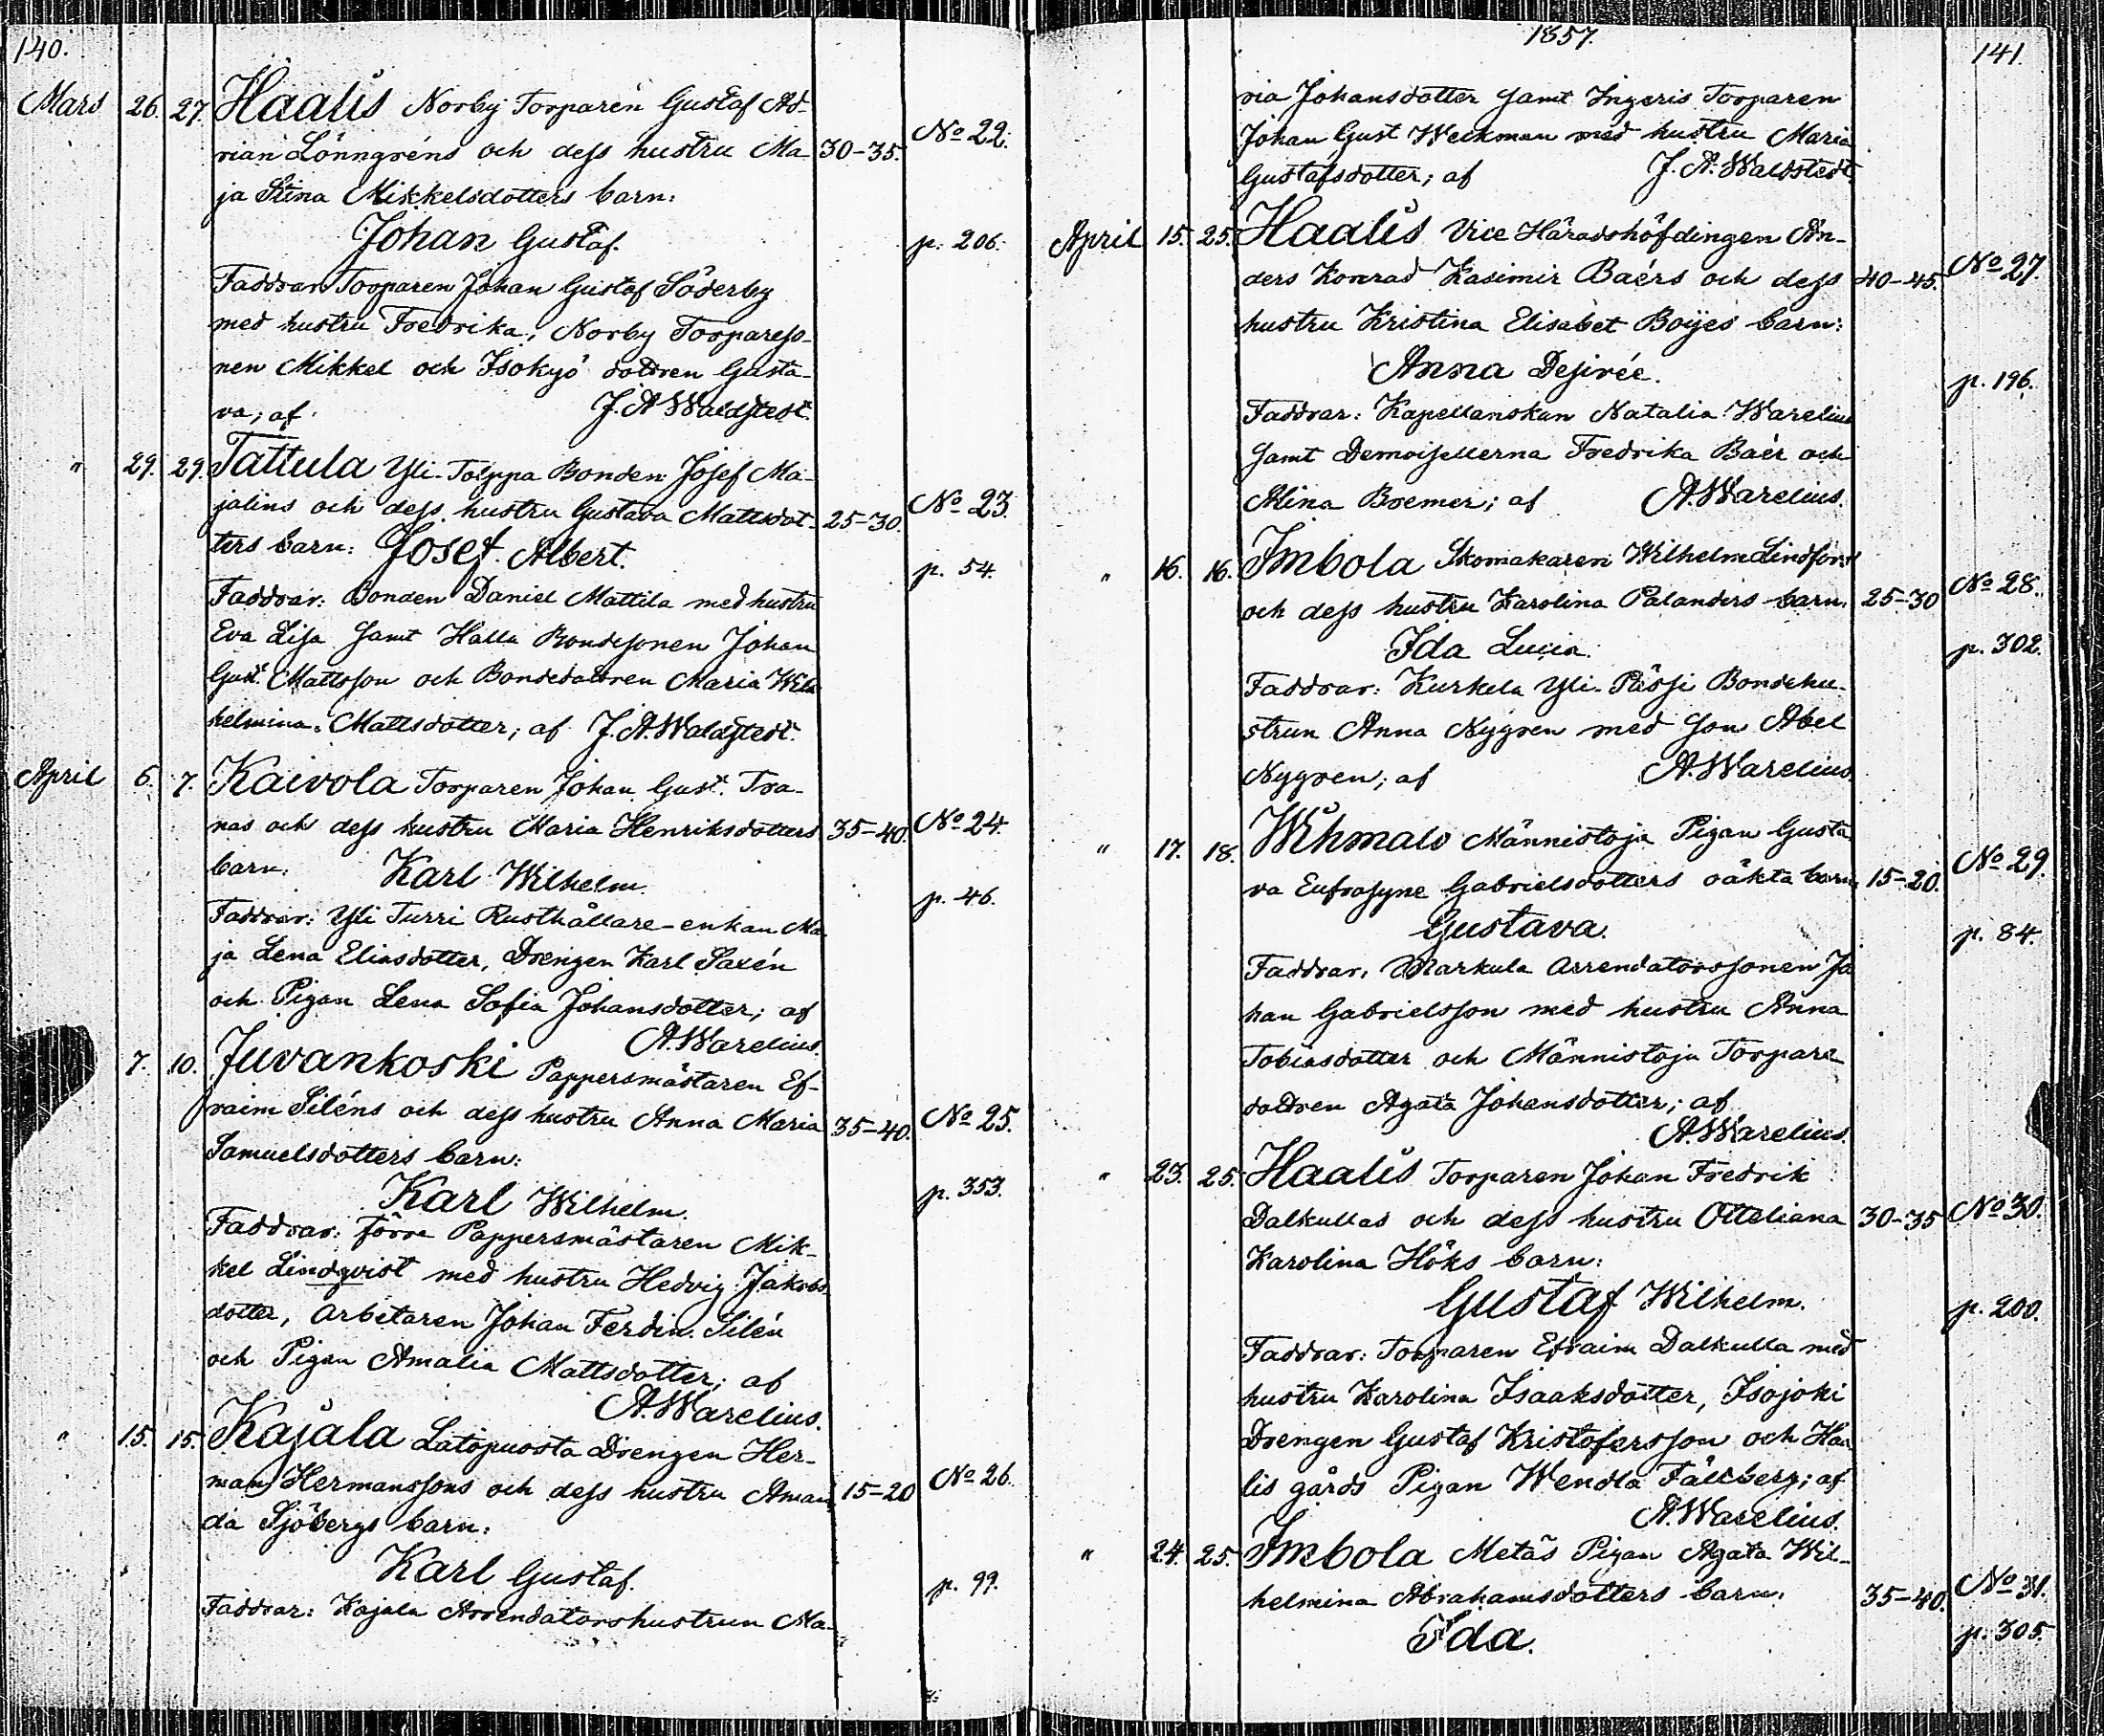 140.
Mars 26. 27. Haalis Norby Torparen Gustaf Ad-
rian Lönngréns och dess hustru Ma- 30-35. No 22.
ja Stina Mikkelsdotters barn:
Johan Gustaf. p. 206.
Faddrar Torparen Johan Gustaf Söderby
med hustru Fredrika, Norby Torpareso-
nen Mikkel och Isokyö dottren Gusta-
va; af J. A Waldstedt.
" 29. 29. Tattula Yli-Tolppa Bonden Josef Ma-
jalins och dess hustru Gustava Mattsdot- 25-30. No 23.
ters barn: Josef Albert. p. 54.
Faddrar: Bonden Daniel Mattila med hustru
Eva Lisa samt Halla Bondesonen Johan
Gust. Mattsson och Bondedottren Maria Wil-
helmina Mattsdotter; af J. A. Waldstedt.
April 6. 7. Kaivola Torparen Johan Gust. Tra-
nas och dess hustru Maria Henriksdotters 35-40. No 24.
barn: Karl Wilhelm. p. 46.
Faddrar: Yli Turri Rusthållare-enkan Ma-
ja Lena Eliasdotter, Drengen Karl Saxén
och Pigan Lena Sofia Johansdotter; af
A. Warelius.
7. 10. Juvankoski Pappersmästaren Ef-
raim Siléns och dess hustru Anna Maria 35-40. No 25.
Samuelsdotters barn:
Karl Wilhelm. p. 353.
Faddrar: förre Pappersmästaren Mik-
kel Lindqvist med hustru Hedvig Jakobs-
dotter, Arbetaren Johan Ferdin. Silén
och Pigan Amalia Mattsdotter; af
A. Warelius.
" 15. 15. Kajala Latopuosta Drengen Her-
man Hermanssons och dess hustru Aman- 15-20 No 26.
da Sjöbergs barn:
Karl Gustaf. p. 99.
Faddrar: Kajala Arrendatorshustrun Ma-
1857. 141.
ria Johansdotter samt Ingeris Torparen
Johan Gust Weckman med hustru Maria
Gustafsdotter; af J. A. Waldstedt.
April 15. 25. Haalis Vice Häradshöfdingen An-
ders Konrad Kasimir Baérs och dess 40-45. No 27.
hustru Kristina Elisabet Boijes barn:
Anna Desirée. p. 196.
Faddrar: Kapellanskan Natalia Warelius
samt Demoisellerna Fredrika Baér och
Alina Bremer; af A. Warelius.
" 16. 16. Imbola Skomakaren Wilhelm Lindfors
och dess hustru Karolina Palanders barn: 25-30 No 28.
Ida Lucia. p. 302.
Faddrar: Kurkela Yli-Pässi Bondehu-
strun Anna Nygren med son Abel
Nygren; af A. Warelius.
" 17. 18. Wihmalo Männistoja Pigan Gusta-
va Eufrosyne Gabrielsdotters oäkta barn: 15-20. No 29.
Gustava. p. 84.
Faddrar: Markula Arrendatorssonen Jo
han Gabrielsson med hustru Anna
Tobiasdotter och Männistoja Torpare
dottren Agata Johansdotter; af
A. Warelius.
" 23. 25. Haalis Torparen Johan Fredrik
Dalkullas och dess hustru Otteliana 30-35 No 30.
Karolina Höks barn:
Gustaf Wilhelm. p. 200.
Faddrar: Torparen Efraim Dalkulla med
hustru Karolina Isaaksdotter, Isojoki
Drengen Gustaf Kristofersson och Haa-
lis gårds Pigan Wendla Fällberg; af
A. Warelius.
" 24. 25. Imbola Metäs Pigan Agata Wil-
helmina Abrahamsdotters barn: 35-40. No 31.
Ida. p. 305.